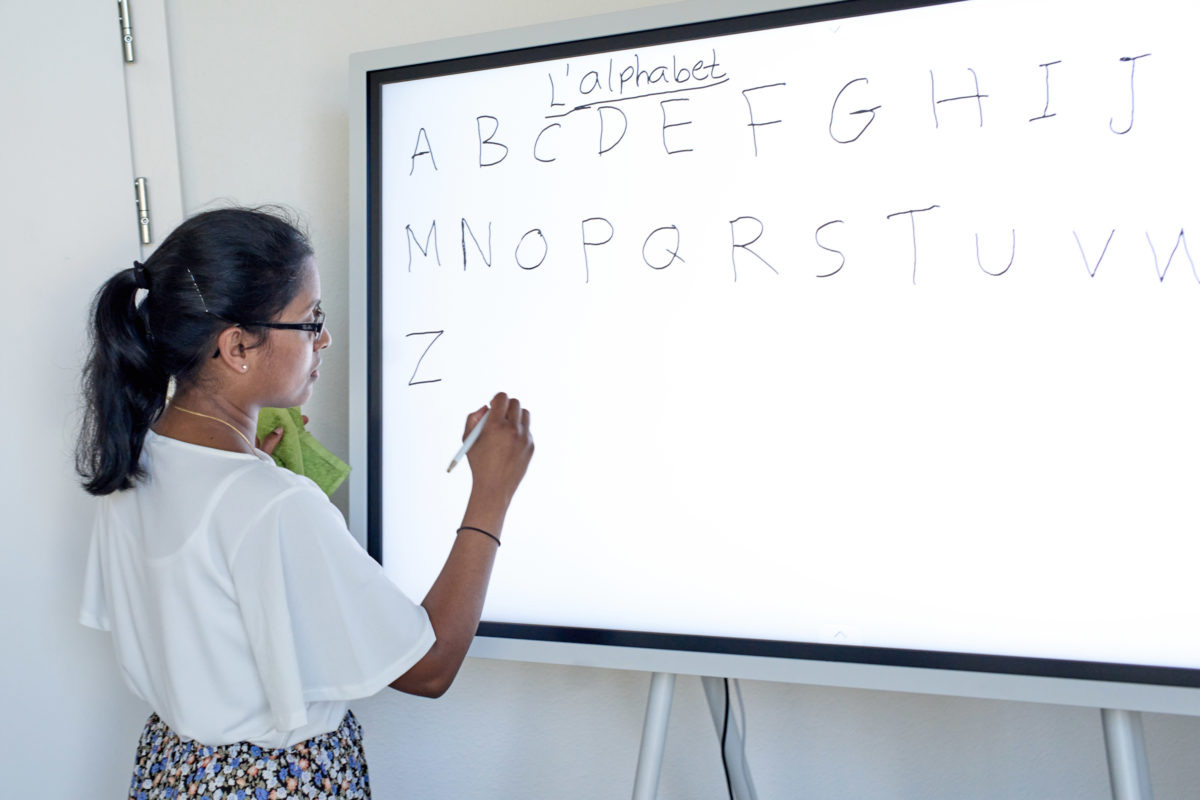 L'alphabet
A B C D E F G H I J
M N O P Q R S T U V W
Z